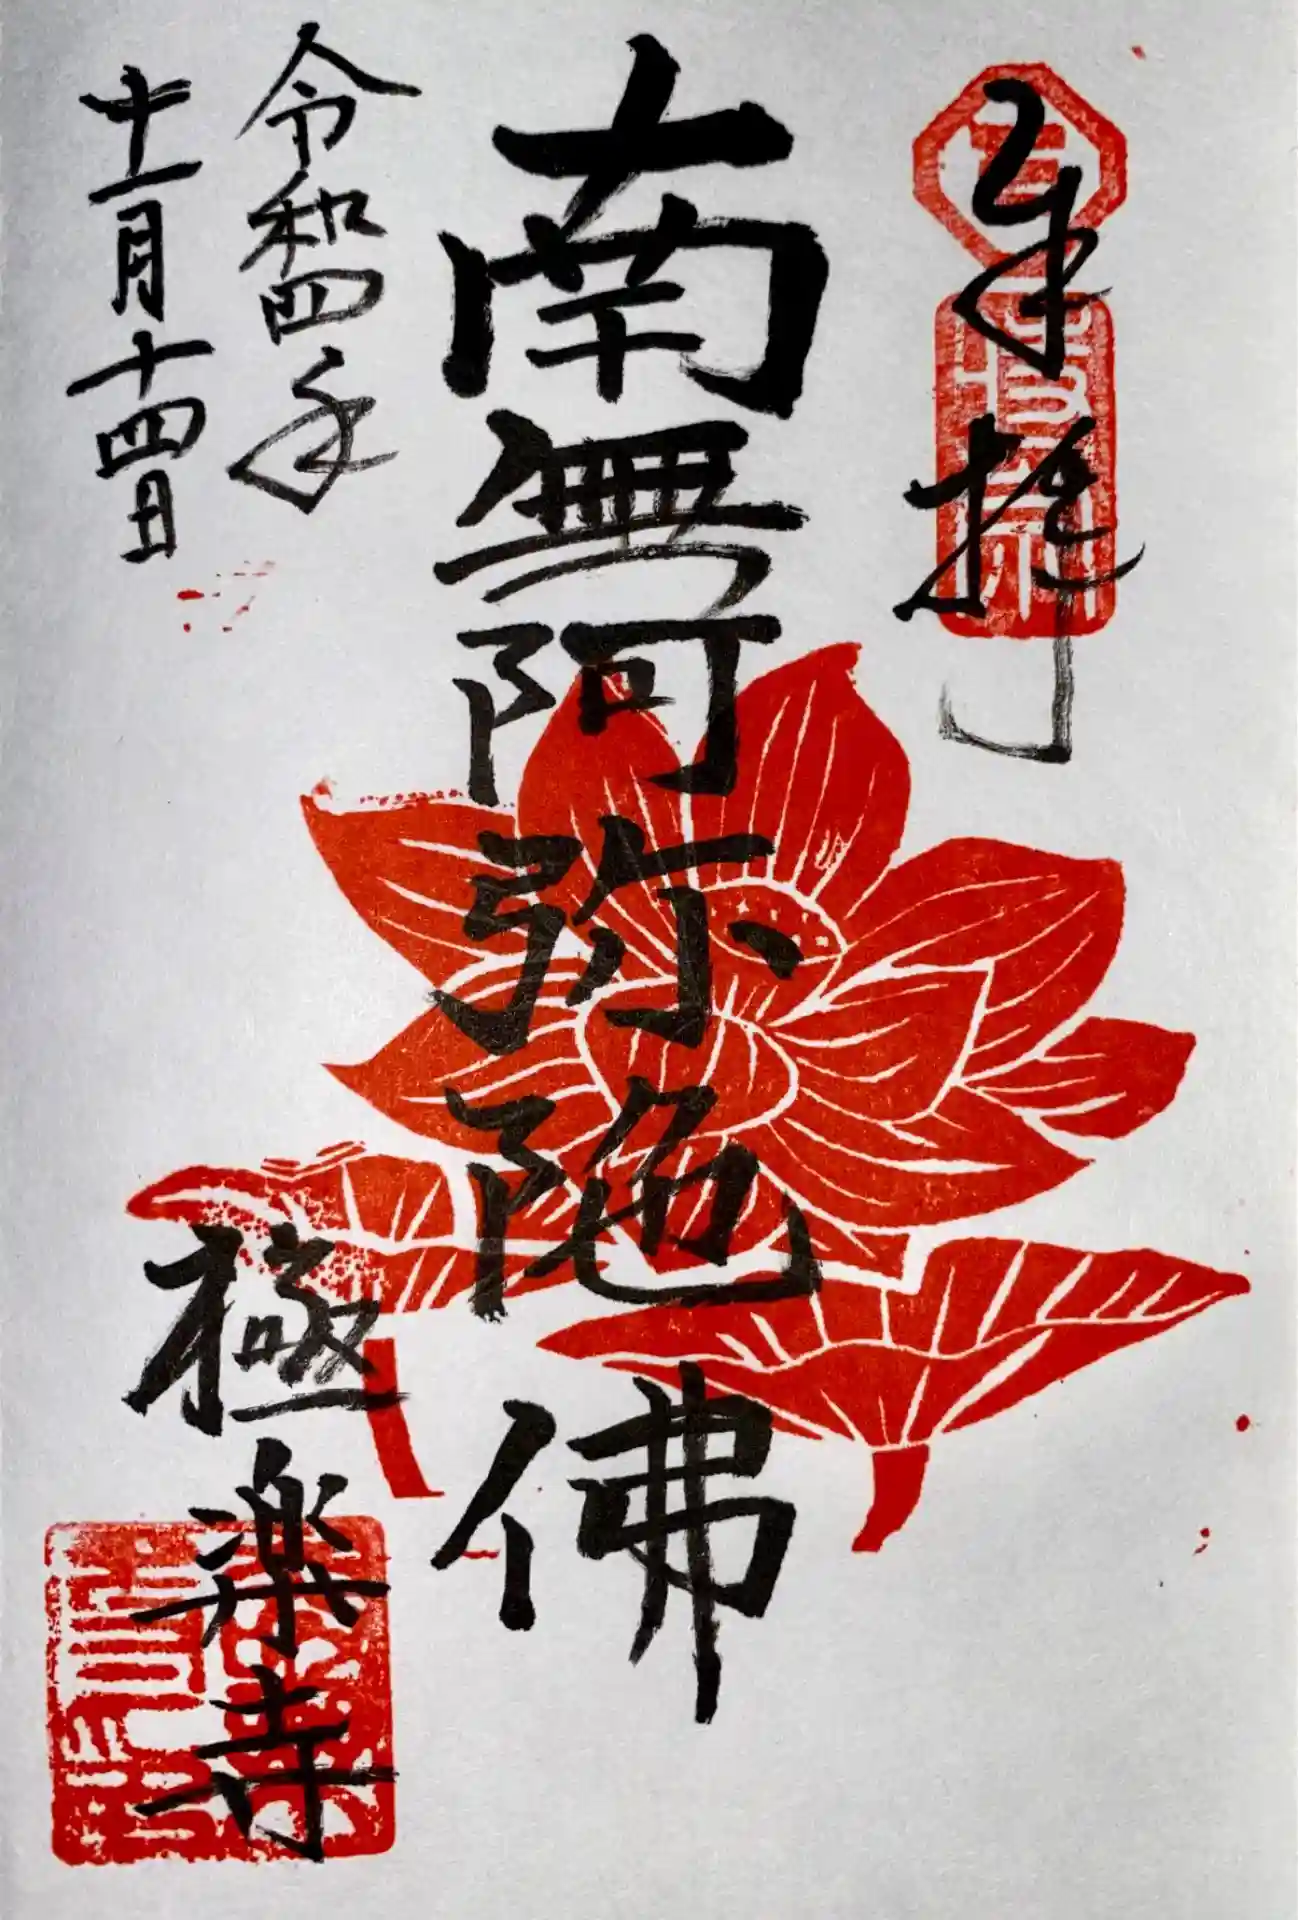 奉拝
南無阿弥陀佛
極楽寺
令和四年
十一月十四日